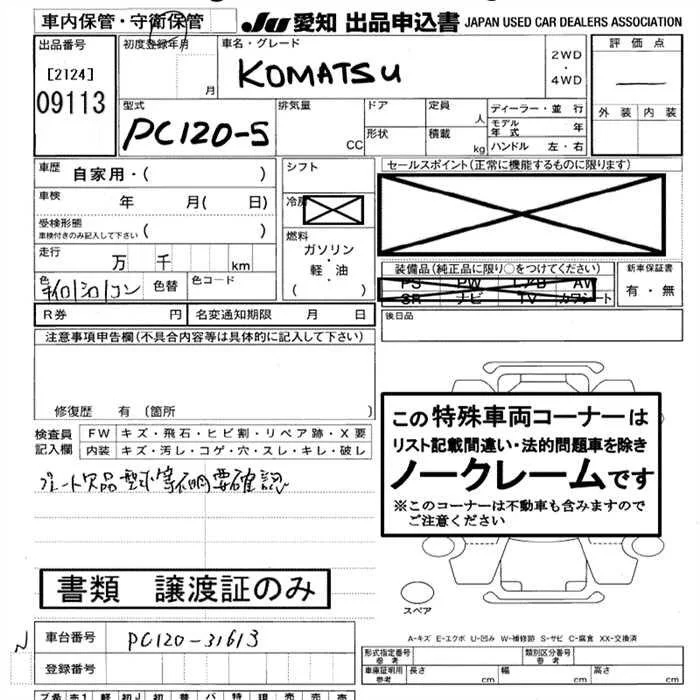 車内保管・守衛保管
JU 愛知 出品申込書 JAPAN USED CAR DEALERS ASSOCIATION
出品番号
[2124]
09113
初度登録年月
月
車名・グレード
KOMATSU
2WD
・
4WD
評価点
外装 内装
型式
PC120-5
排気量
CC
ドア
形状
定員
人
積載
kg
ディーラー・並 行
モデル年式 年
ハンドル 左・右
車歴
自家用・( )
車検 年 月( 日)
受検形態
車検付きのみ記入して下さい ( )
走行
万 千 km
色
色替
色コード
シフト
冷房
燃料
ガソリン
・
軽・油
( )
セールスポイント(正常に機能するものに限ります)
装備品(純正品に限り○をつけてください)
PS PW エアB AV
SR ナビ TV カワシート
新車保証書
有・無
R券 円 名変通知期限 月 日
後日品
注意事項申告欄(不具合内容等は具体的に記入して下さい)
修復歴 有 〔箇所 〕
検査員記入欄
FW キズ・飛石・ヒビ割・リペア跡・X要
内装 キズ・汚レ・コゲ・穴・スレ・キレ・破レ
プレート欠品 型式等不明要確認
この特殊車両コーナーは
リスト記載間違い・法的問題車を除き
ノークレームです
※このコーナーは不動車も含みますので
ご注意ください
書類 譲渡証のみ
スペア
車台番号 PC120-31613
登録番号
A-キズ E-エクボ U-凹み W-補修跡 S-サビ C-腐食 XX-交換済
形式指定番号 参考
類別区分番号 参考
車庫証明用 参考 長さ cm 幅 cm 高さ cm